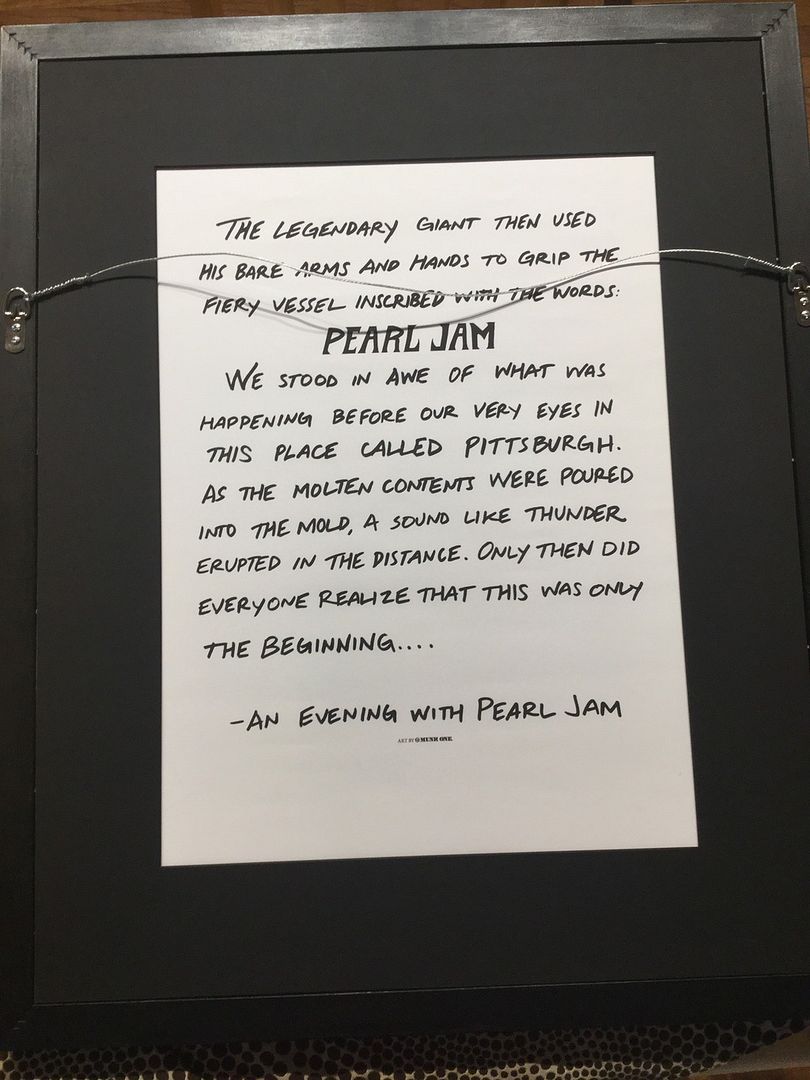 THE LEGENDARY GIANT THEN USED
HIS BARE ARMS AND HANDS TO GRIP THE
FIERY VESSEL INSCRIBED WITH THE WORDS:
PEARL JAM
WE STOOD IN AWE OF WHAT WAS
HAPPENING BEFORE OUR VERY EYES IN
THIS PLACE CALLED PITTSBURGH.
AS THE MOLTEN CONTENTS WERE POURED
INTO THE MOLD, A SOUND LIKE THUNDER
ERUPTED IN THE DISTANCE. ONLY THEN DID
EVERYONE REALIZE THAT THIS WAS ONLY
THE BEGINNING....
-AN EVENING WITH PEARL JAM
ART BY @MUNK ONE